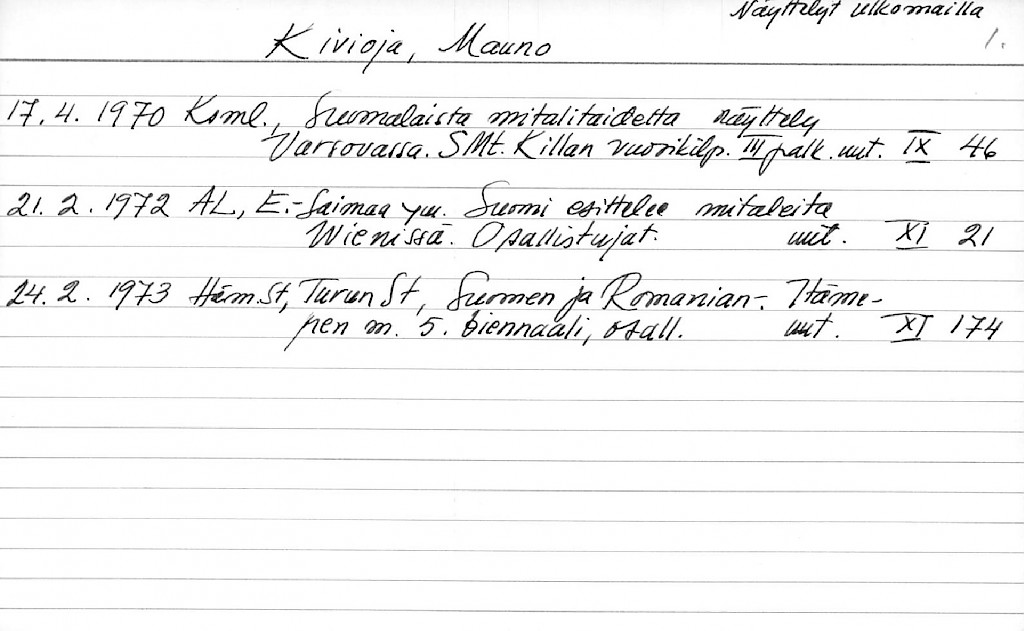 Näyttelyt ulkomailla
1.
Kivioja, Mauno
17.4.1970 Ksml., Suomalaista mitalitaidetta näyttely
Varsovassa. SMt. Killan vuosikilp. III palk. uut. IX 46
21.2.1972 AL, E.-Saimaa ym. Suomi esittelee mitaleita
Wienissä. Osallistujat. uut. XI 21
24.2.1973 Häm.St, Turun St, Suomen ja Romanian-. Itäme-
ren m. 5. biennaali, osall. uut. XI 174